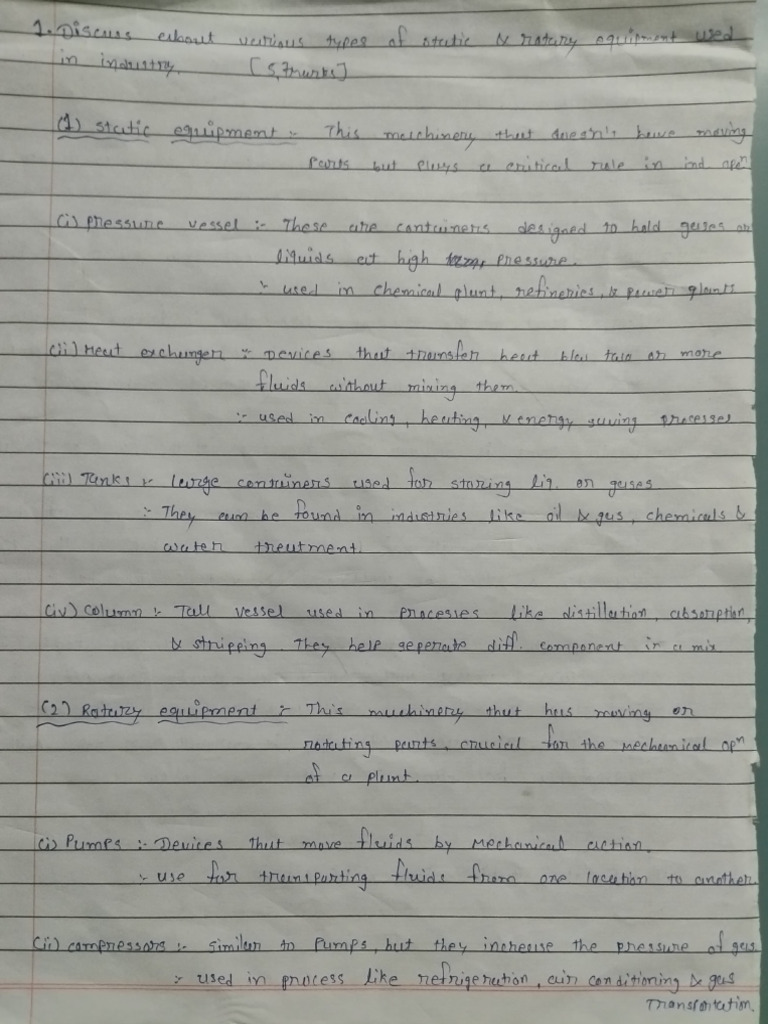 1. Discuss about various types of static & rotary equipment used
in industry. [5,7marks]
(1) static equipment :- This machinery that doesn't have moving
parts but plays a critical role in ind opeⁿ
(i) pressure vessel :- These are containers designed to hold gases or
liquids at high pressure.
:- used in chemical plant, refineries, & power plants
(ii) Heat exchanger :- Devices that transfer heat btw two or more
fluids without mixing them.
:- used in cooling, heating, & energy saving processes
(iii) Tanks :- large containers used for storing liq. or gases
:- They can be found in industries like oil & gas, chemicals &
water treatment.
(iv) column :- Tall vessel used in processes like distillation, absorption,
& stripping. They help seperate diff. component in a mix
(2) Rotary equipment :- This machinery that has moving or
rotating parts, crucial for the mechanical opⁿ
of a plant.
(i) Pumps :- Devices that move fluids by mechanical action.
:- use for transporting fluids from one location to another
(ii) compressors :- similar to pumps, but they increase the pressure of gas
:- used in process like refrigeration, air conditioning & gas